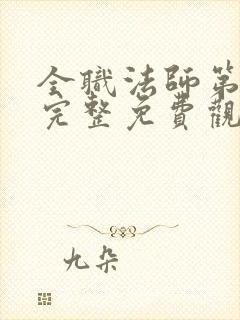 全職法師第
完整免費觀
九朵